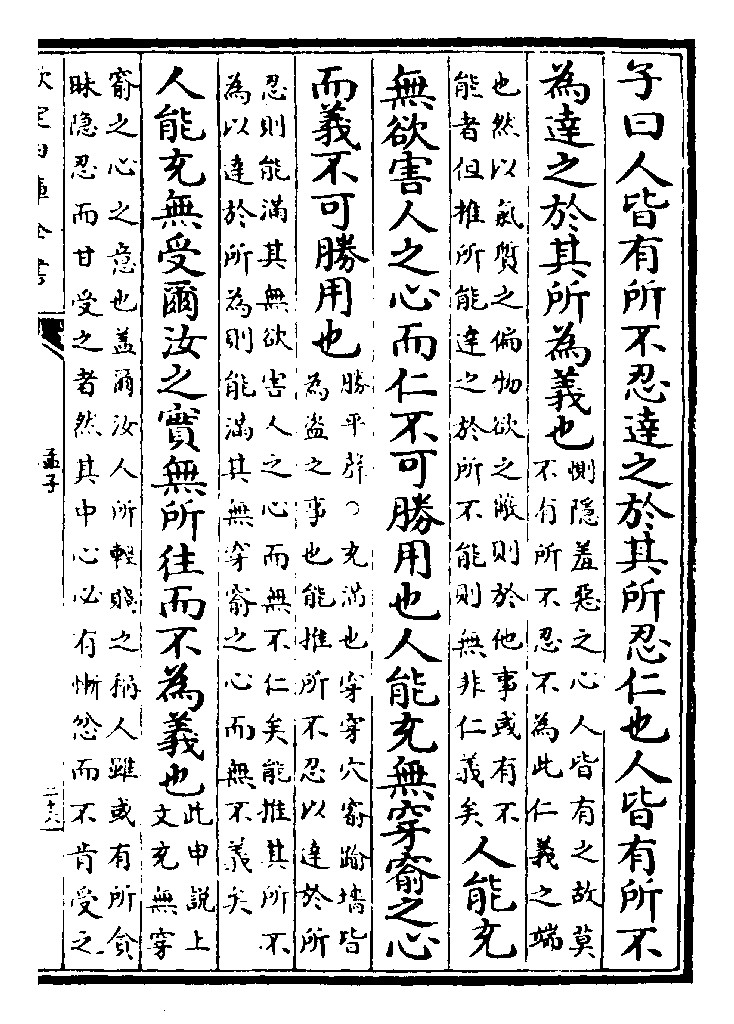 子曰人皆有所不忍達之於其所忍仁也人皆有所不
為達之於其所為義也惻隱羞惡之心人皆有之故莫
不有所不忍不為此仁義之端
也然以氣質之偏物欲之蔽則於他事或有不
能者但推所能達之於所不能則無非仁義矣人能充
無欲害人之心而仁不可勝用也人能充無穿窬之心
而義不可勝用也勝平聲○充滿也穿穿穴窬踰墻皆
為盜之事也能推所不忍以達於所
忍則能滿其無欲害人之心而無不仁矣能推其所不
為以達於所為則能滿其無穿窬之心而無不義矣
人能充無受爾汝之實無所往而不為義也此申說上
文充無穿
窬之心之意也蓋爾汝人所輕賤之稱人雖或有所貪
昧隱忍而甘受之者然其中心必有慚忿而不肯受之
欽定四庫全書
孟子
二十六